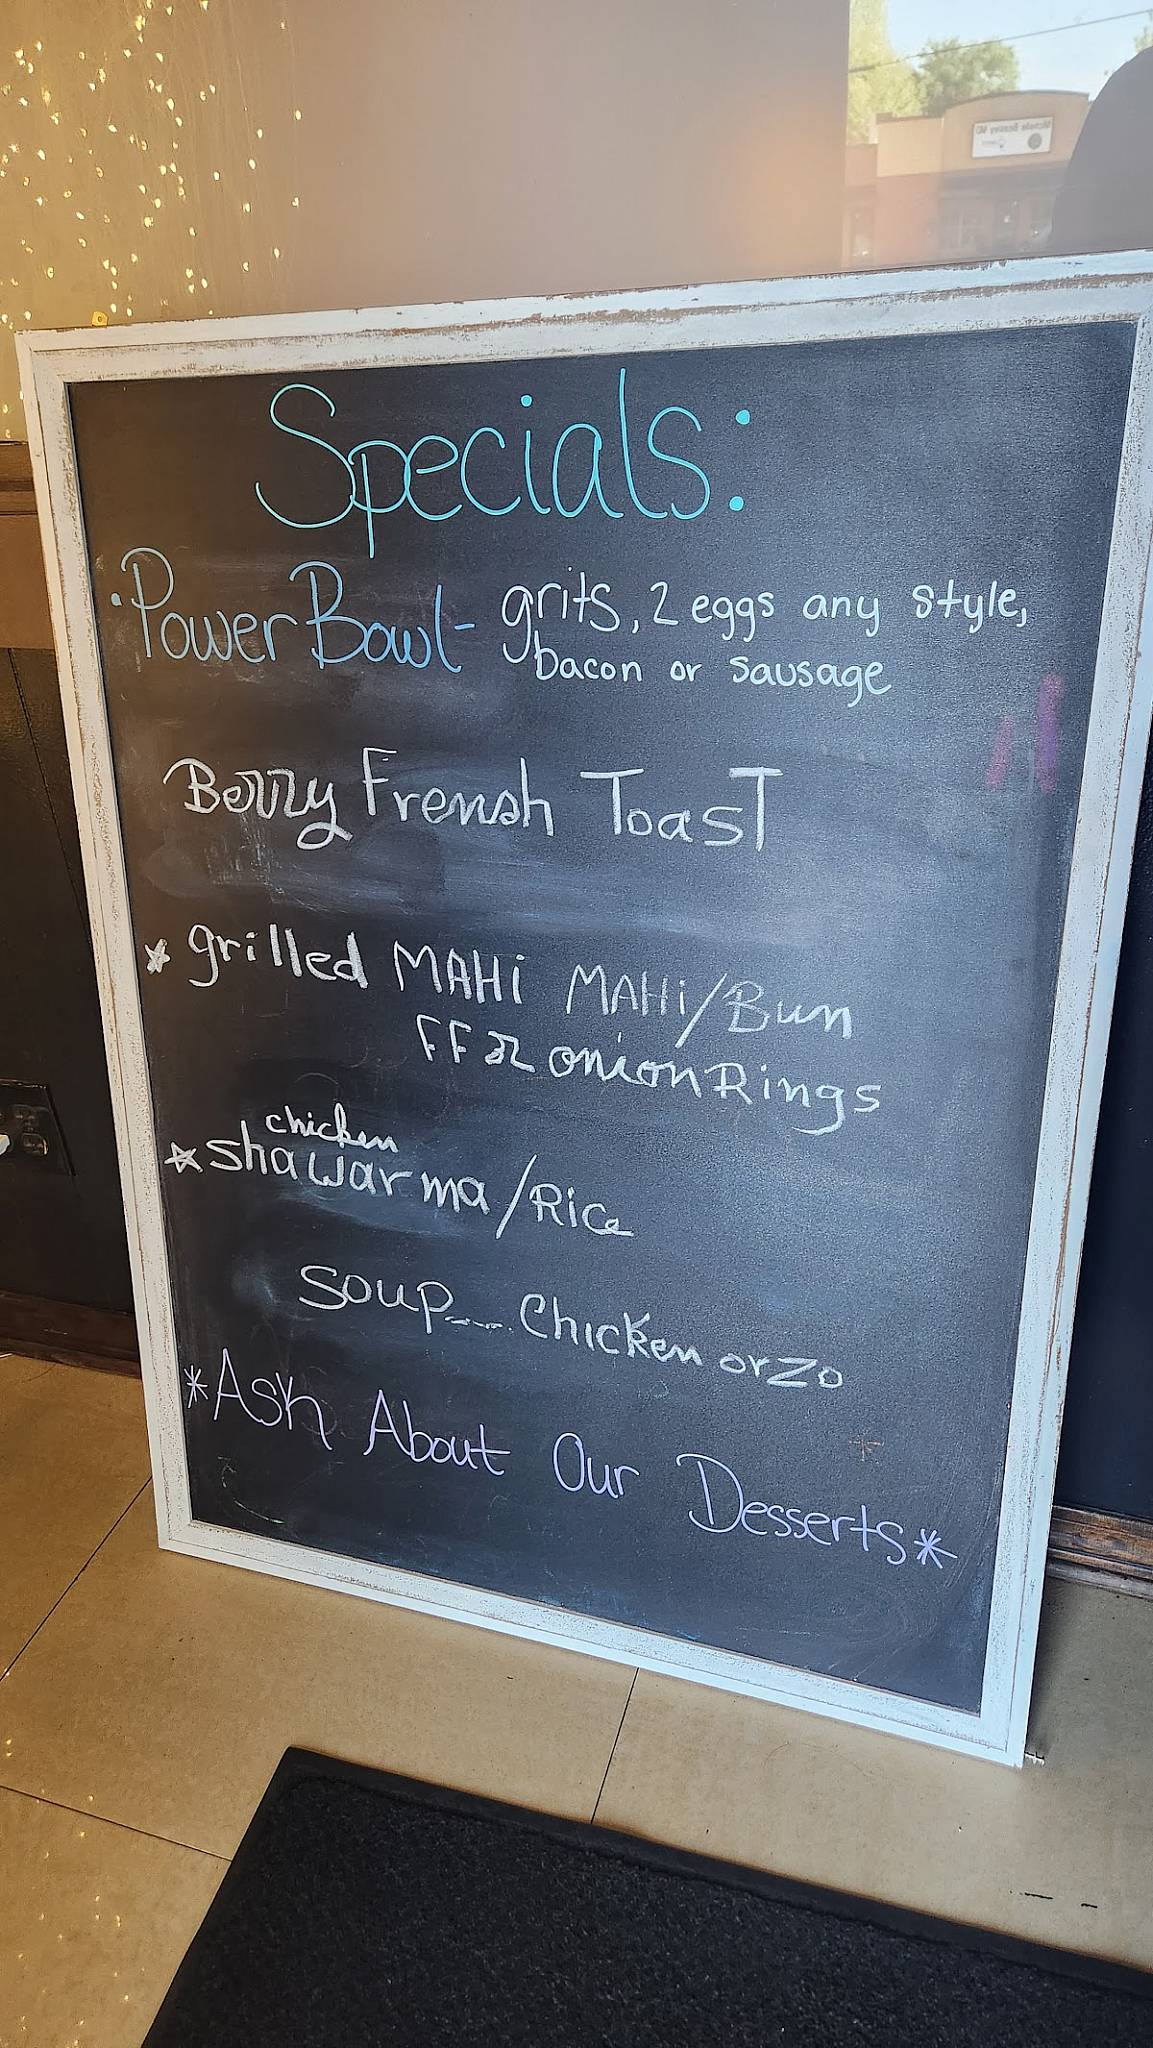 Specials:
• Power Bowl - grits, 2 eggs any style,
bacon or sausage
Berry French Toast
* grilled MAHi MAHi/Bun
FF or onion Rings
chicken
* shawarma/Rice
Soup.... Chicken orzo
*Ask About Our Desserts*